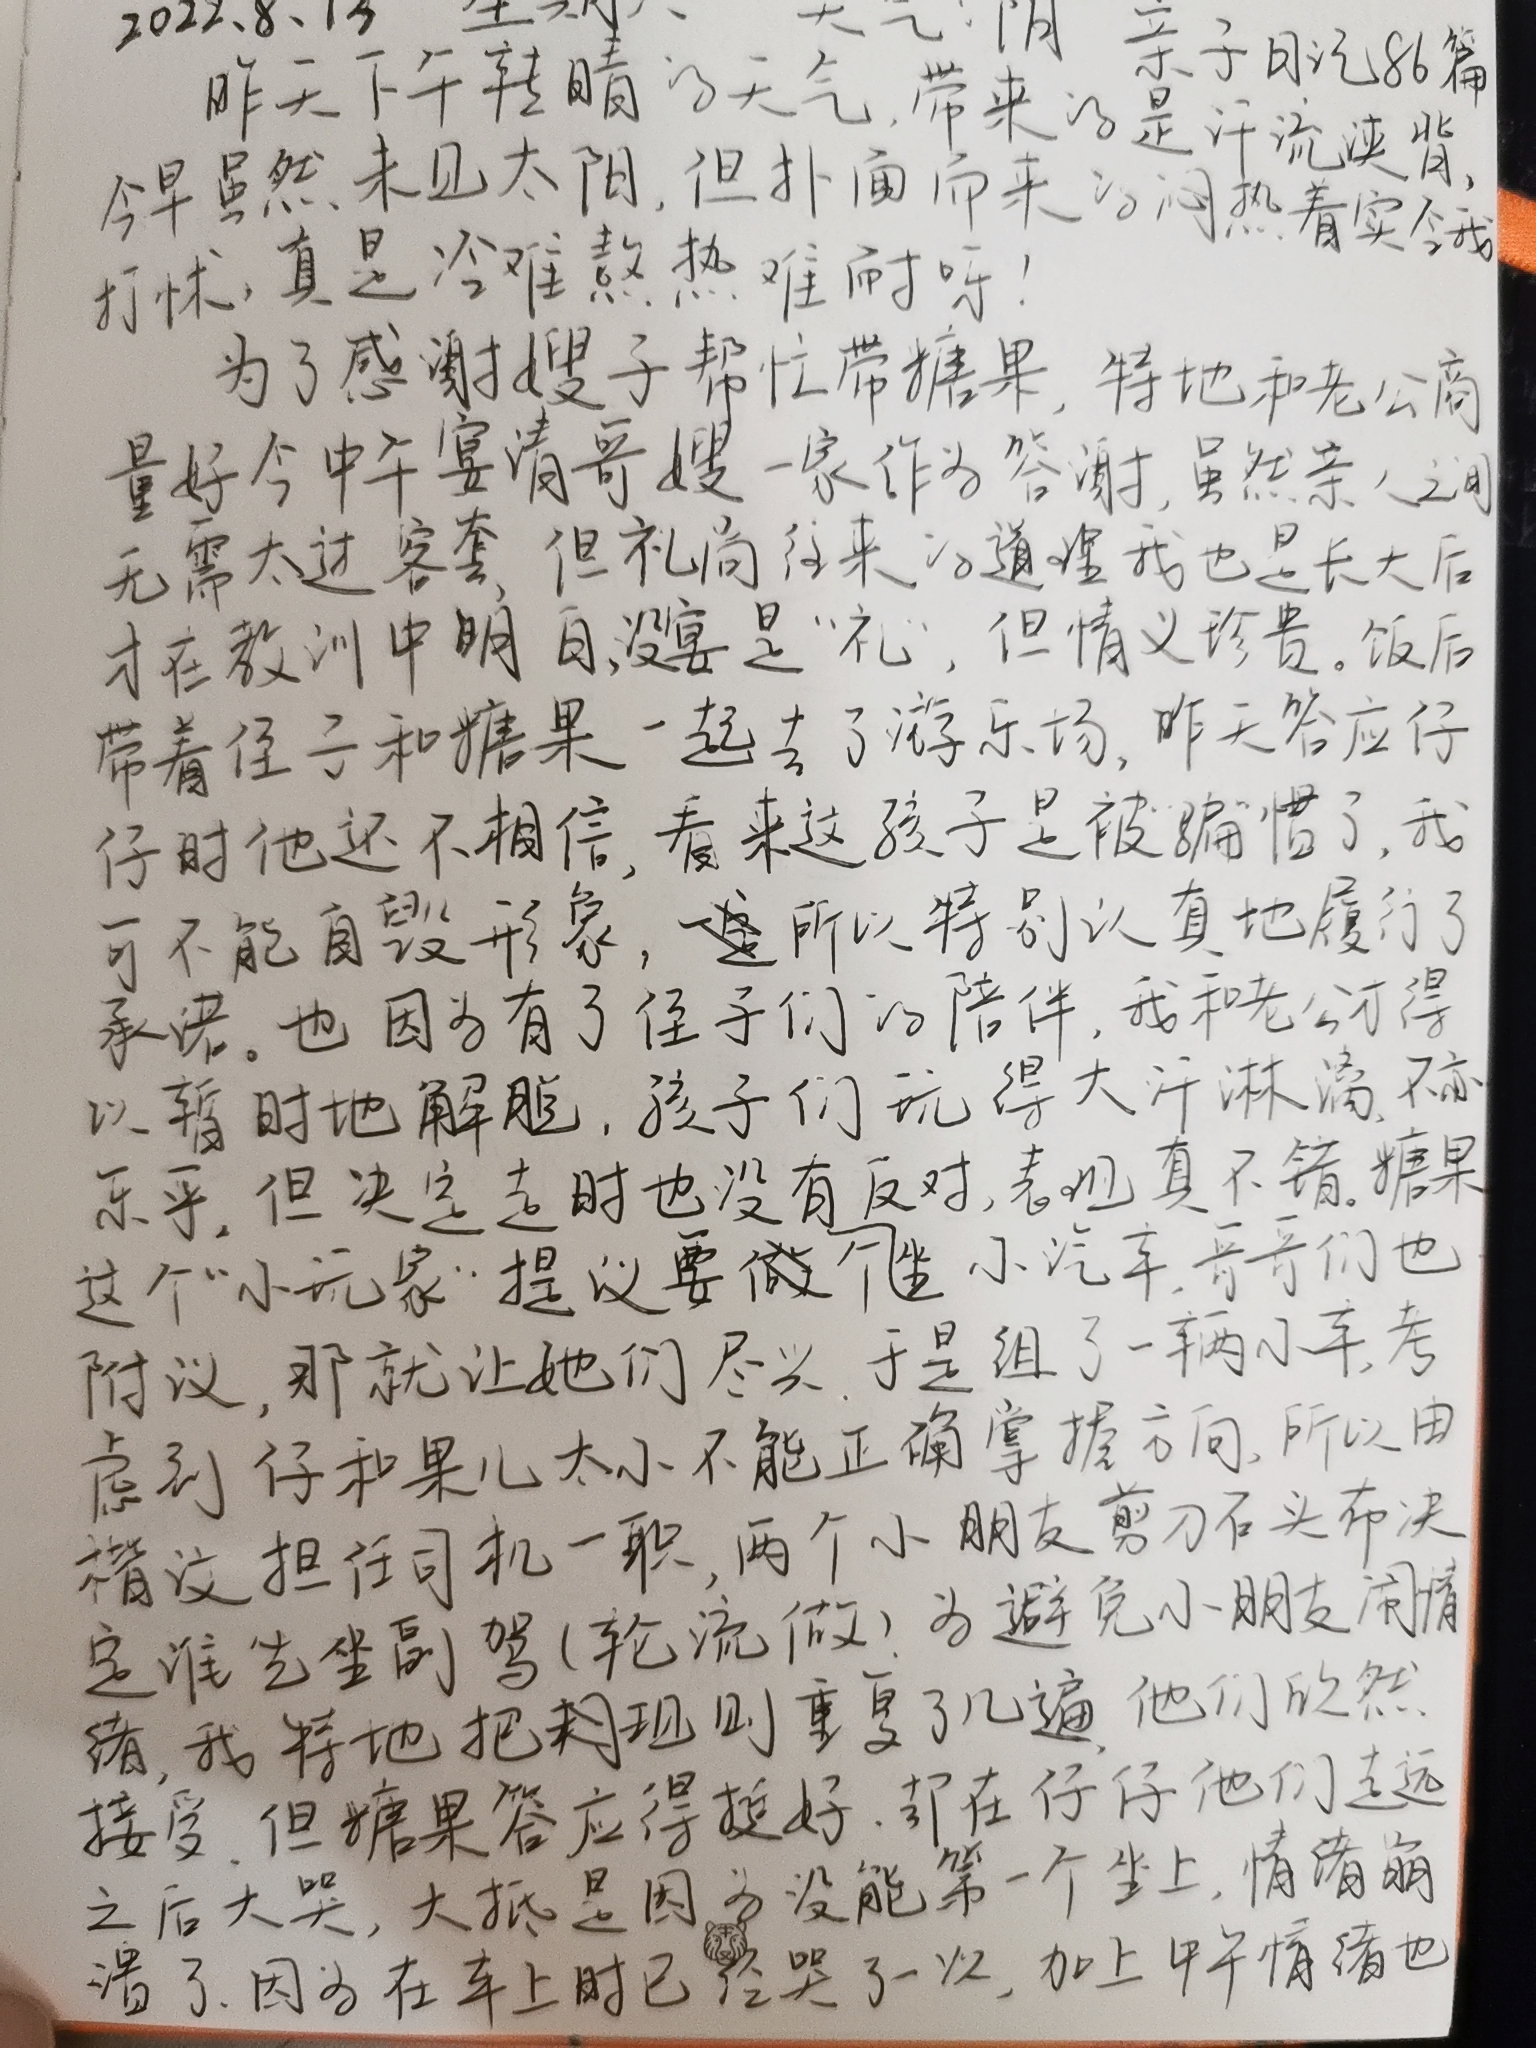 2022.8.13 星期六 天气：阴 亲子日记86篇
昨天下午转晴的天气，带来的是汗流浃背，
今早虽然未见太阳，但扑面而来的闷热着实令我
打怵，真是冷难熬热难耐呀！
为了感谢嫂子帮忙带糖果，特地和老公商
量好今中午宴请哥嫂一家作为答谢，虽然亲人之间
无需太过客套，但礼尚往来的道理我也是长大后
才在教训中明白，没宴是“礼”，但情义珍贵。饭后
带着侄子和糖果一起去了游乐场，昨天答应仔
仔时他还不相信，看来这孩子是被“骗”惯了，我
可不能自毁形象，所以特别认真地履行了
承诺。也因为有了侄子们的陪伴，我和老公才得
以暂时地解脱，孩子们玩得大汗淋漓，不亦
乐乎，但决定走时也没有反对，表现真不错。糖果
这个“小玩家”提议要坐小汽车，哥哥们也
附议，那就让她们尽兴，于是组了一辆小车，考
虑到仔和果儿太小不能正确掌握方向，所以由
楷汶担任司机一职，两个小朋友剪刀石头布决
定谁先坐副驾（轮流做），为避免小朋友闹情
绪，我特地把规则重复了几遍，他们欣然
接受，但糖果答应得挺好，却在仔仔他们走远
之后大哭，大抵是因为没能第一个坐上，情绪崩
溃了，因为在车上时已经哭了一次，加上中午情绪也